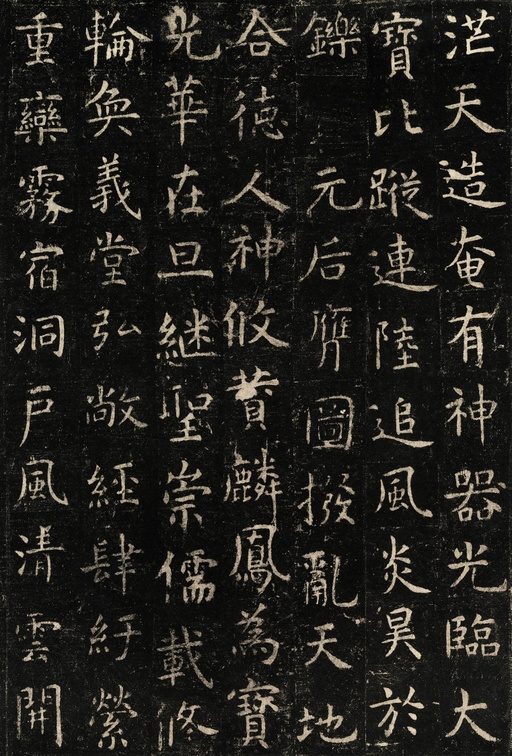 茫天造奄有神器光臨大
寶比蹤連陸追風炎昊於
鑠 元后膺圖撥亂天地
合德人神攸贊麟鳳為寶
光華在旦繼聖崇儒載修
輪奐義堂弘敞經肆紆縈
重欒霧宿洞戶風清雲開